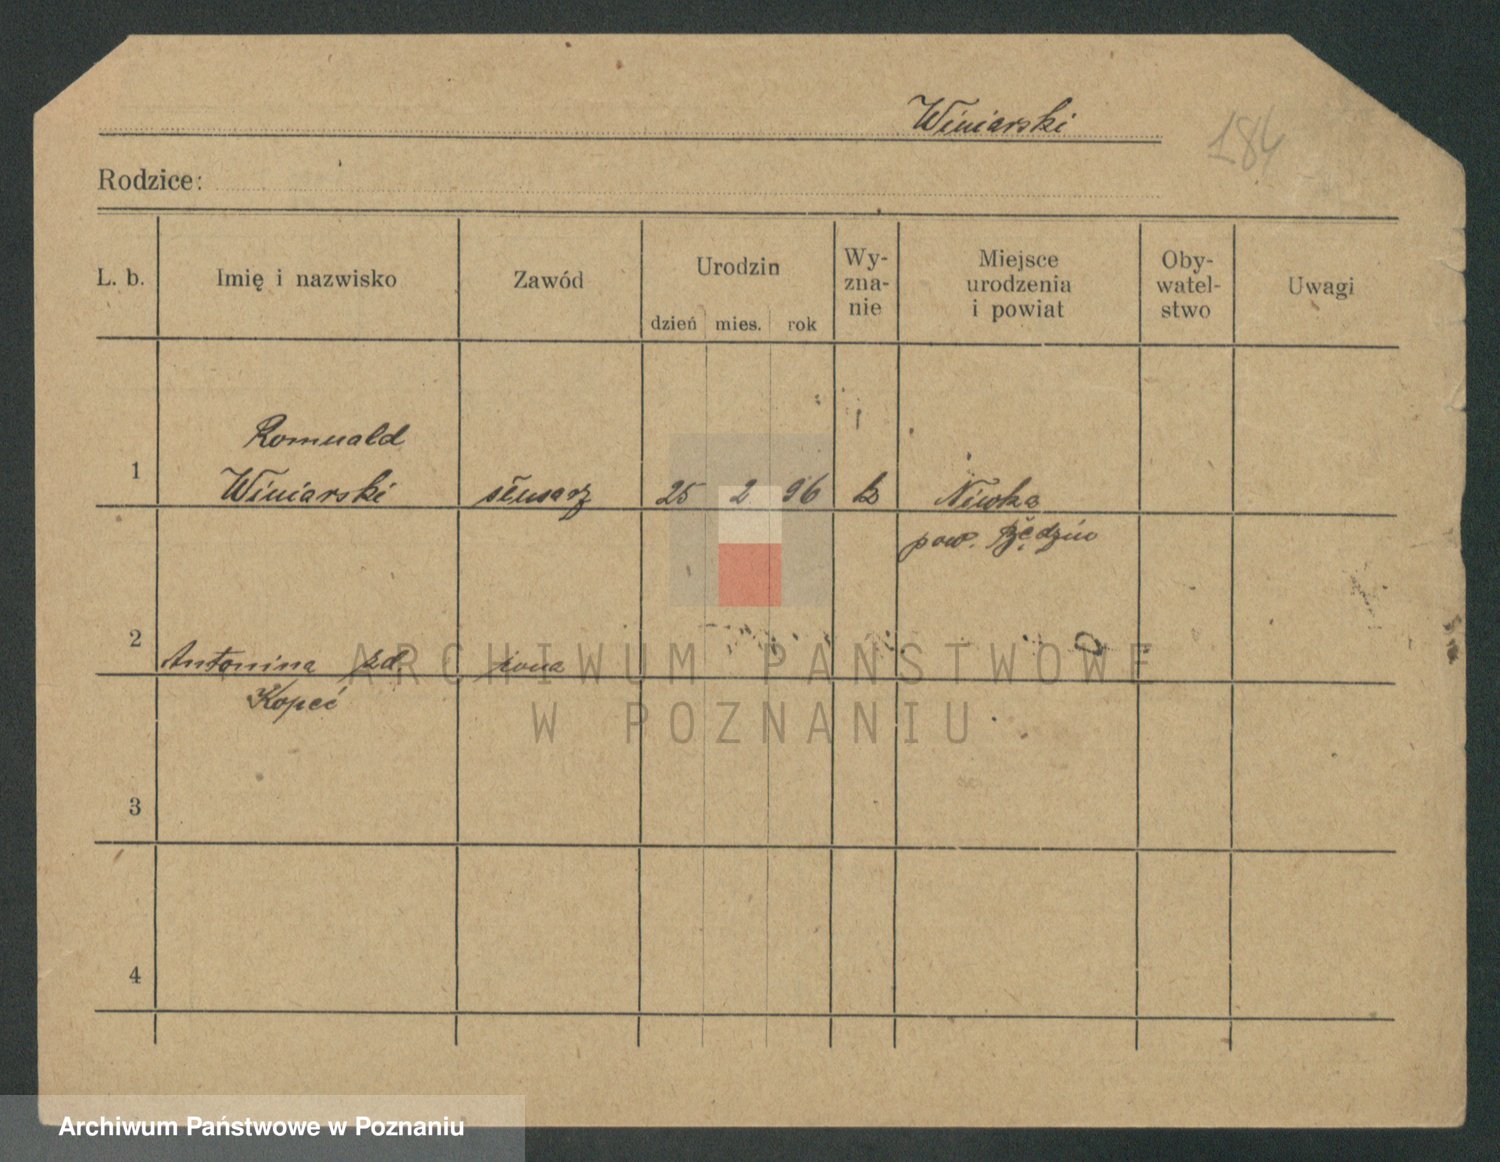 Winiarski
184
Rodzice:
L. b.
Imię i nazwisko
Zawód
Urodzin
dzień mies. rok
Wy-
zna-
nie
Miejsce
urodzenia
i powiat
Oby-
watel-
stwo
Uwagi
Romuald
1 Winiarski ślusarz 25 2 96 Niwka
pow. Będzin
2 Antonina zd. żona
Kopeć
3
4
ARCHIWUM PAŃSTWOWE
W POZNANIU
Archiwum Państwowe w Poznaniu